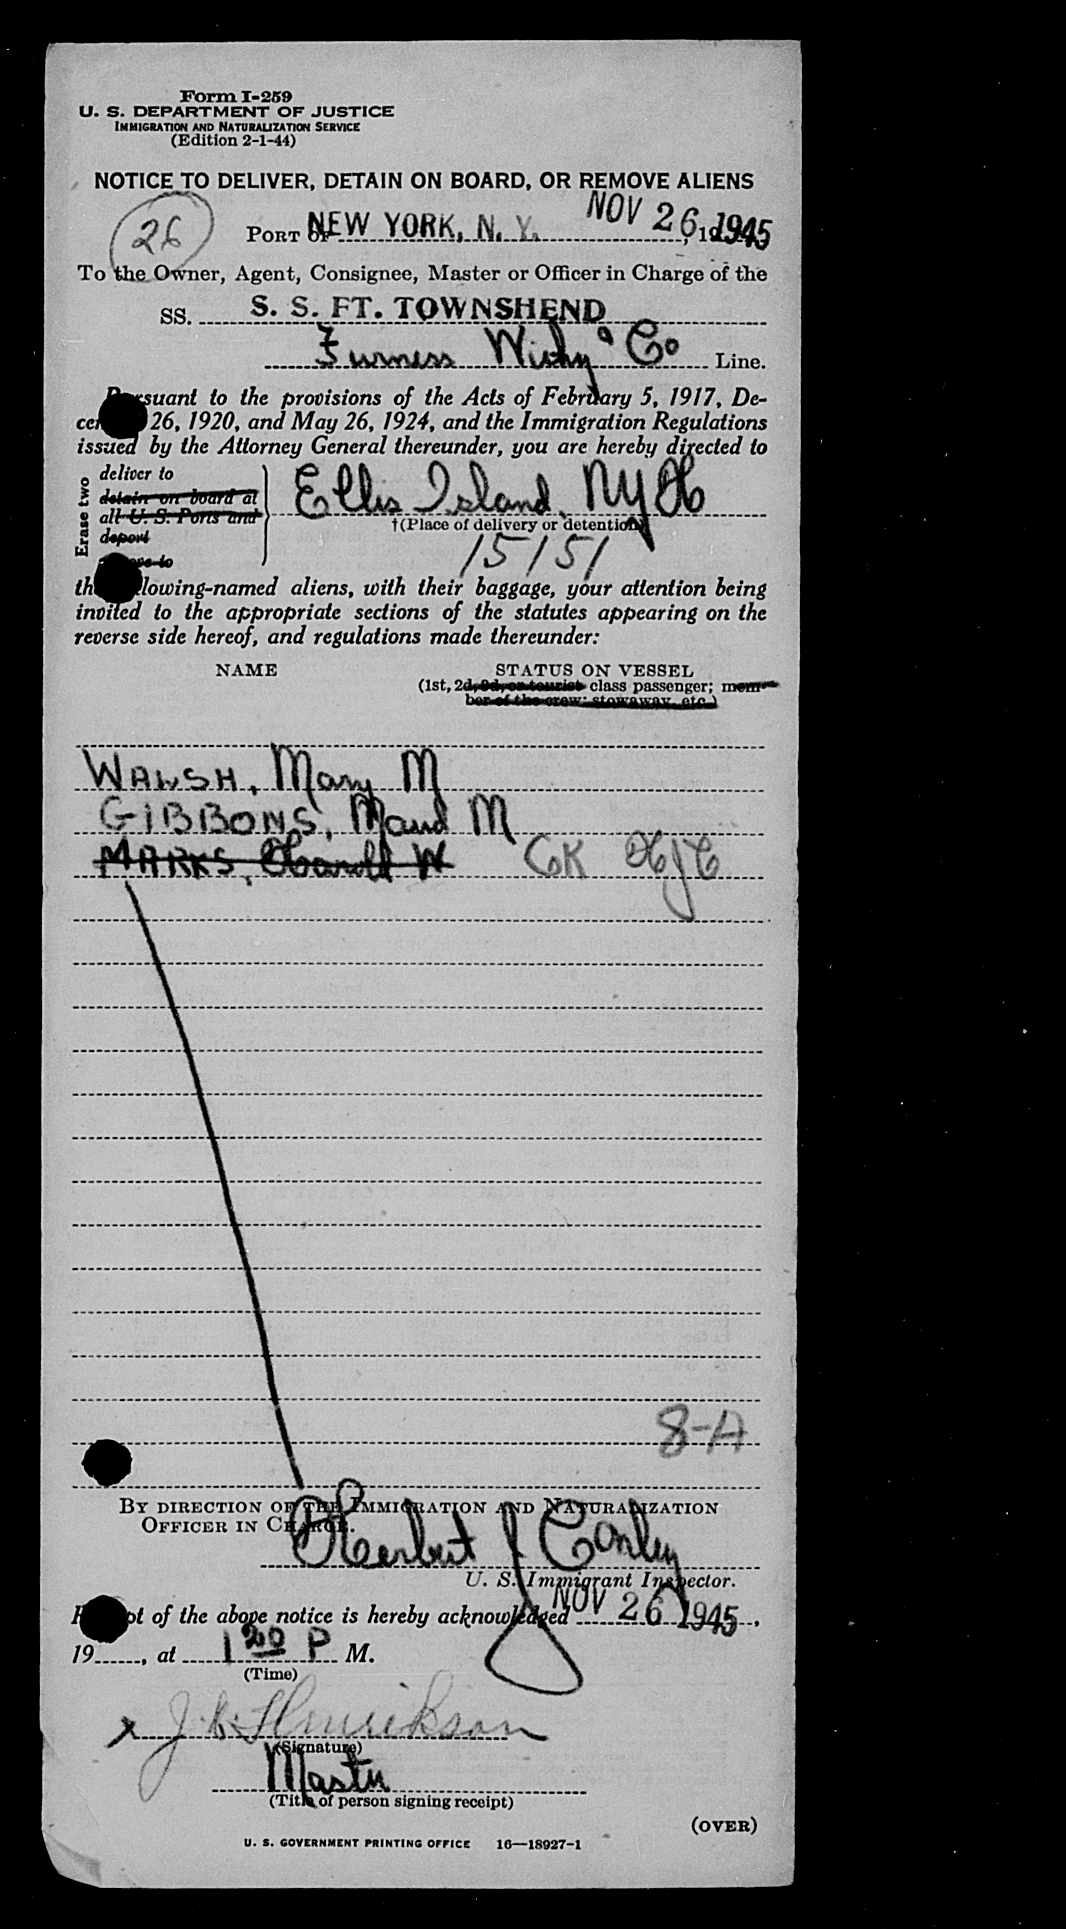 Form I-259
U. S. DEPARTMENT OF JUSTICE
IMMIGRATION AND NATURALIZATION SERVICE
(Edition 2-1-44)
NOTICE TO DELIVER, DETAIN ON BOARD, OR REMOVE ALIENS
26
PORT OF NEW YORK, N. Y. NOV 26, 1945
To the Owner, Agent, Consignee, Master or Officer in Charge of the
SS. S. S. FT. TOWNSHEND
Furness Withy & Co Line.
Pursuant to the provisions of the Acts of February 5, 1917, De-
cember 26, 1920, and May 26, 1924, and the Immigration Regulations
issued by the Attorney General thereunder, you are hereby directed to
Erase two
deliver to
detain on board at
all U. S. Ports and
deport
remove to
Ellis Island, NYH
†(Place of delivery or detention)
15151
the following-named aliens, with their baggage, your attention being
invited to the appropriate sections of the statutes appearing on the
reverse side hereof, and regulations made thereunder:
NAME STATUS ON VESSEL
(1st, 2d, 3d, or tourist class passenger; mem-
ber of the crew; stowaway, etc.)
WALSH, Mary M
GIBBONS, Maud M
MARKS, Harold W OK HJC
8-A
BY DIRECTION OF THE IMMIGRATION AND NATURALIZATION
OFFICER IN CHARGE.
Herbert J Conley
U. S. Immigrant Inspector.
Receipt of the above notice is hereby acknowledged NOV 26 1945,
19......, at 1 20 P M.
(Time)
x Henrikson
(Signature)
Master
(Title of person signing receipt)
(OVER)
U. S. GOVERNMENT PRINTING OFFICE 16—18927-1